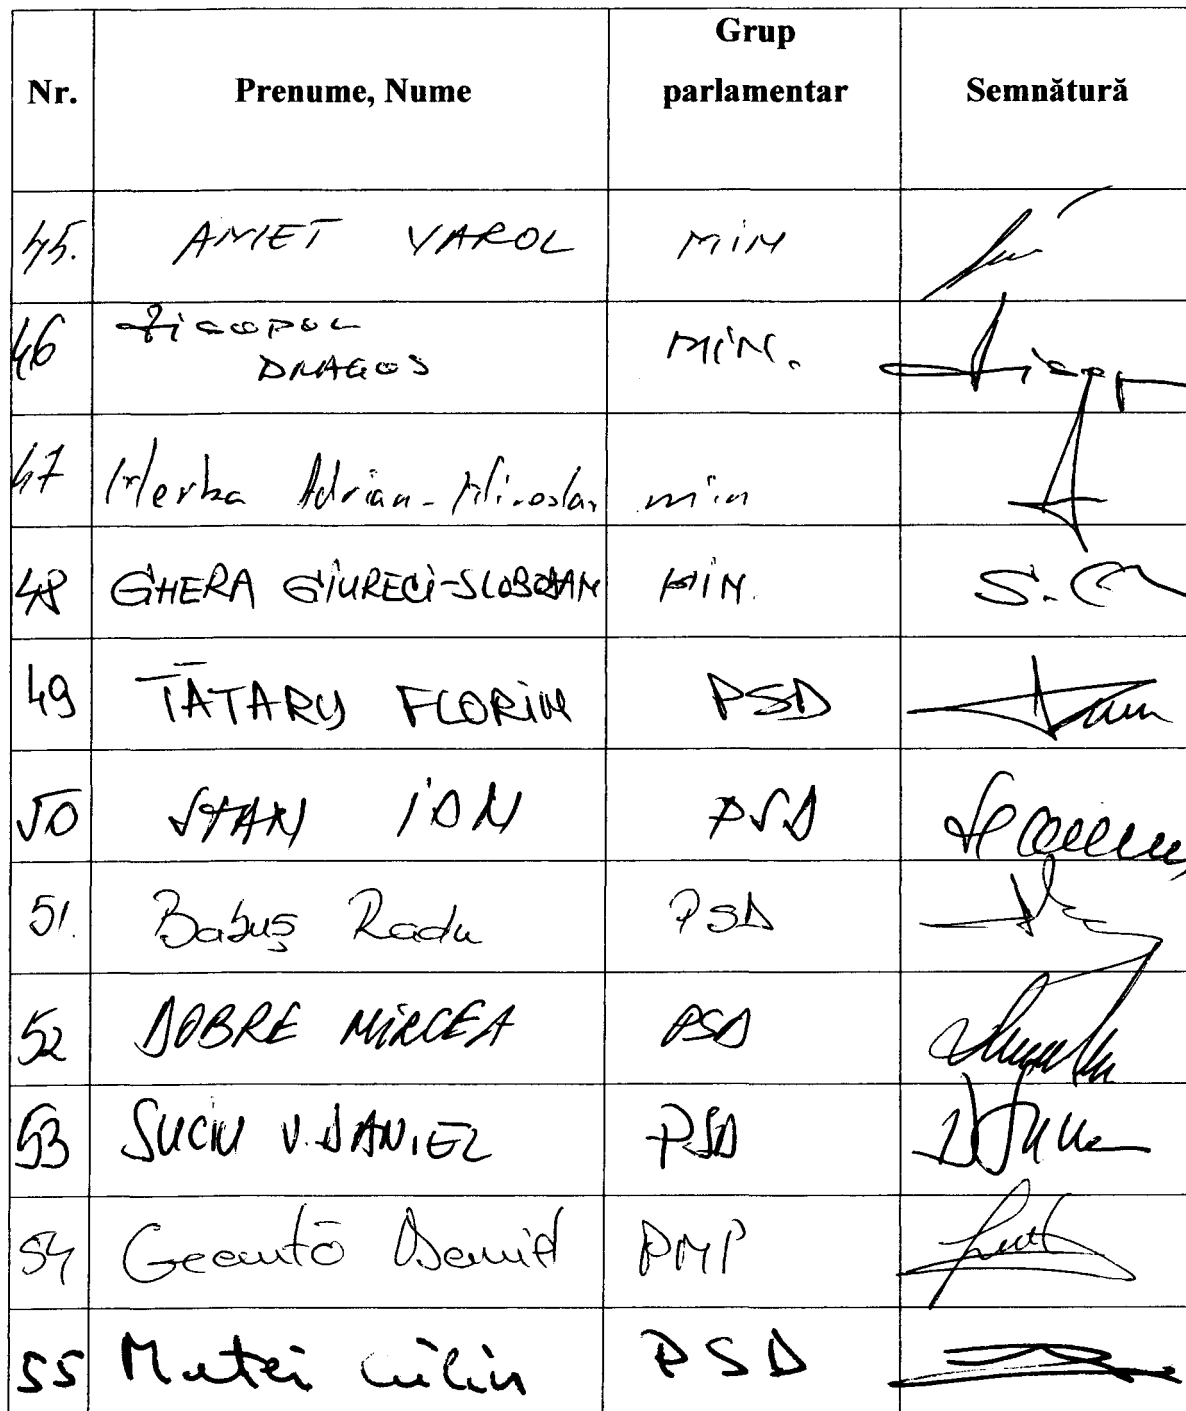 Nr. Prenume, Nume Grup parlamentar Semnătură
45. AMET VAROL MIN
46 Zisopol DRAGOS MIN.
47 Merka Adrian-Miroslav min
48 GHERA GIURECI-SLOBODAN MIN.
49 TĂTARU FLORIN PSD
50 STAN ION PSD
51. Babuș Radu PSD
52 DOBRE MIRCEA PSD
53 SUCIU V. DANIEL PSD
54 Geantă Daniel PMP
55 Matei Călin PSD